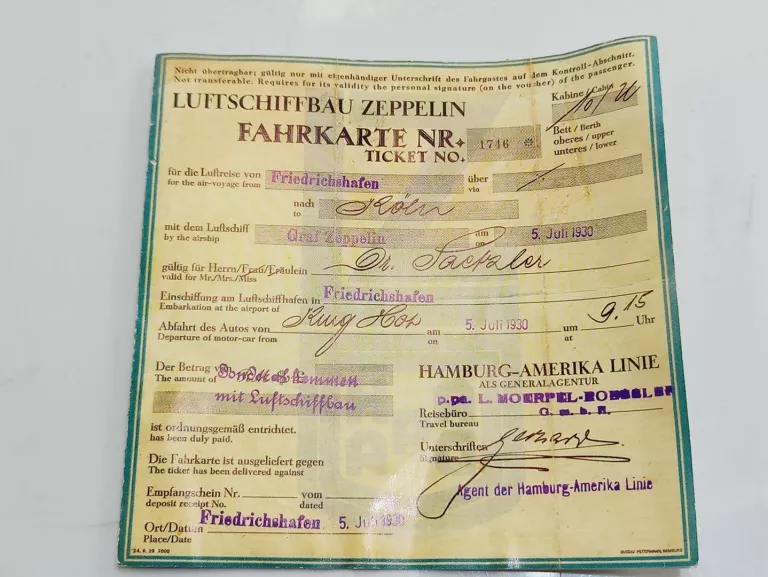 Nicht übertragbar; gültig nur mit eigenhändiger Unterschrift des Fahrgastes auf dem Kontroll-Abschnitt.
Not transferable. Requires for its validity the personal signature (on the voucher) of the passenger.
LUFTSCHIFFBAU ZEPPELIN
Kabine / Cabin
FAHRKARTE NR.
TICKET NO.
1746
Bett / Berth
oberes / upper
unteres / lower
für die Luftreise von Friedrichshafen über
for the air-voyage from via
nach Köln
to
mit dem Luftschiff Graf Zeppelin am 5. Juli 1930
by the airship on
gültig für Herrn/Frau/Fräulein Dr.
valid for Mr./Mrs./Miss
Einschiffung am Luftschiffhafen in Friedrichshafen
Embarkation at the airport of
Abfahrt des Autos von am 5. Juli 1930 um 9.15 Uhr
Departure of motor-car from on at
Der Betrag
The amount of
mit Luftschiffbau
ist ordnungsgemäß entrichtet.
has been duly paid.
HAMBURG-AMERIKA LINIE
ALS GENERALAGENTUR
Reisebüro G. m. b. H.
Travel bureau
Unterschriften
Signature
Agent der Hamburg-Amerika Linie
Die Fahrkarte ist ausgeliefert gegen
The ticket has been delivered against
Empfangschein Nr. vom
deposit receipt No. dated
Ort/Datum Friedrichshafen 5. Juli 1930
Place/Date